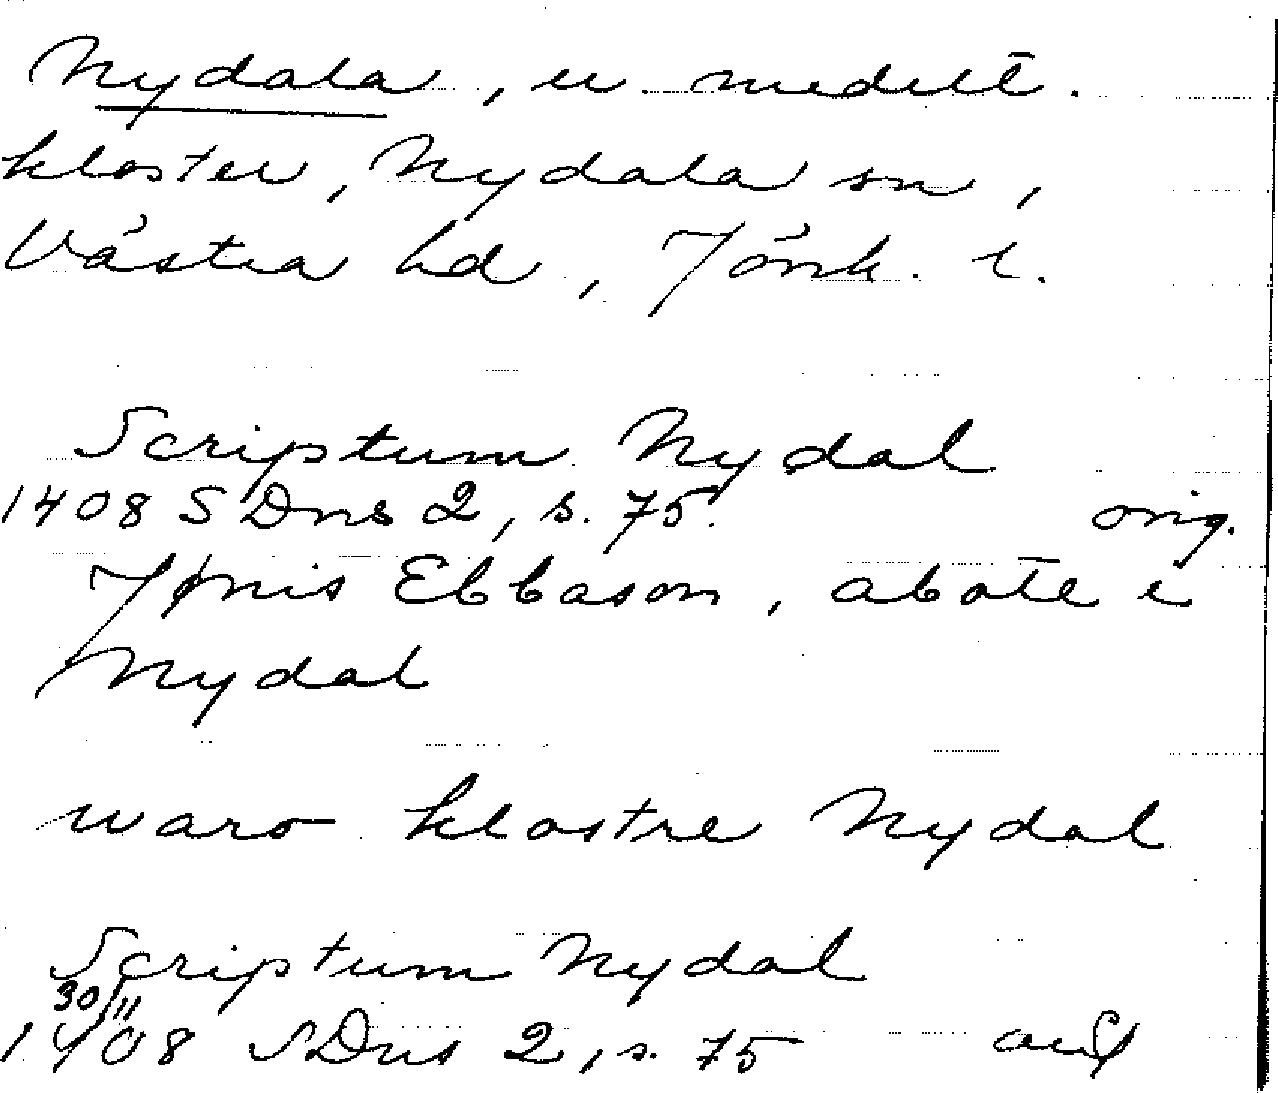 Nydala, u. medelt.
kloster, Nydala sn,
Västra hd, Jönk. l.
Scriptum Nydal
1408 SDns 2, s. 75. orig.
Jønis Ebbason, abote i
Nydal
waro klostre Nydal
Scriptum Nydal
30/11
1408 SDns 2, s. 75